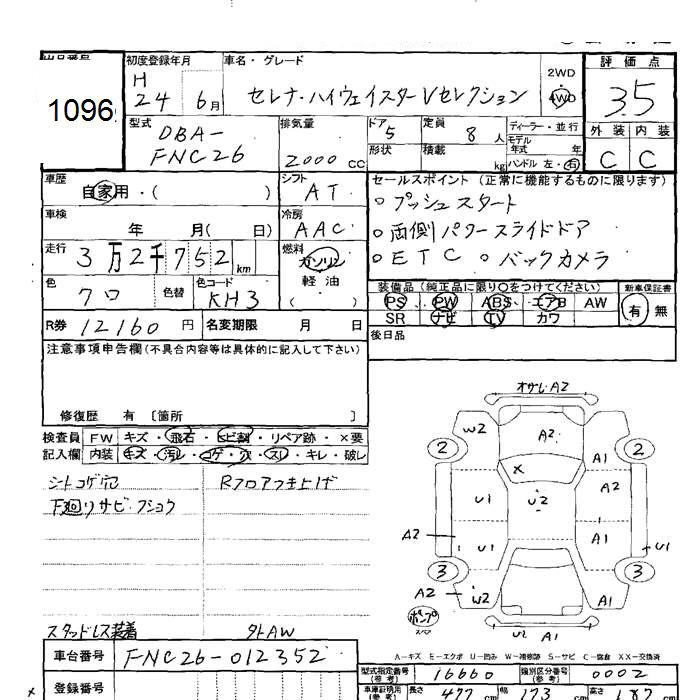 出品番号 初度登録年月 車名・グレード 評価点
1096 H 24 6月 セレナ・ハイウェイスターVセレクション 2WD 4WD 3.5
型式 DBA-FNC26 排気量 2000 CC ドア 5 形状 定員 8人 積載 kg ディーラー・並行 モデル年式 年 ハンドル 左・右 外装 内装 C C
車歴 自家用・( ) シフト AT
セールスポイント (正常に機能するものに限ります)
車検 年 月( 日) 冷房 AAC
○プッシュスタート
○両側パワースライドドア
走行 3万2千752km 燃料 ガソリン 軽油 ( )
○ETC ○バックカメラ
色 クロ 色替 色コード KH3
装備品(純正品に限り○をつけてください) 新車保証書
PS PW ABS エアB AW 有・無
SR ナビ TV カワ
R券 12160円 名変期限 月 日
後日品
注意事項申告欄(不具合内容等は具体的に記入して下さい)
修復歴 有 〔箇所 〕
検査員 FW キズ・飛石・ヒビ割・リペア跡・×要
記入欄 内装 キズ・汚レ・コゲ・穴・スレ・キレ・破レ
シートコゲ穴 Rフロアつき上げ
下廻リサビ・フショク
スタッドレス装着 外AW
オサレA2
W2 A2 2 2
A1
×
U1 U2 A2
A2 U1 A1 U1
3 3
A2 W2 A1
ポンプ
U2 A1
A-キズ E-エクボ U-凹み W-補修跡 S-サビ C-腐食 XX-交換済
車台番号 FNC26-012352
型式指定番号(参考) 16660 類別区分番号(参考) 0002
登録番号
車庫証明用(参考) 長さ 477cm 幅 173cm 高さ 187cm